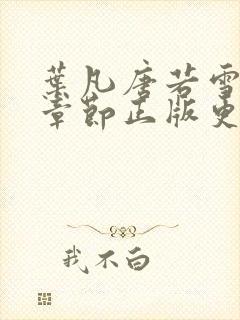 葉凡唐若雪
章節正版更
我不白